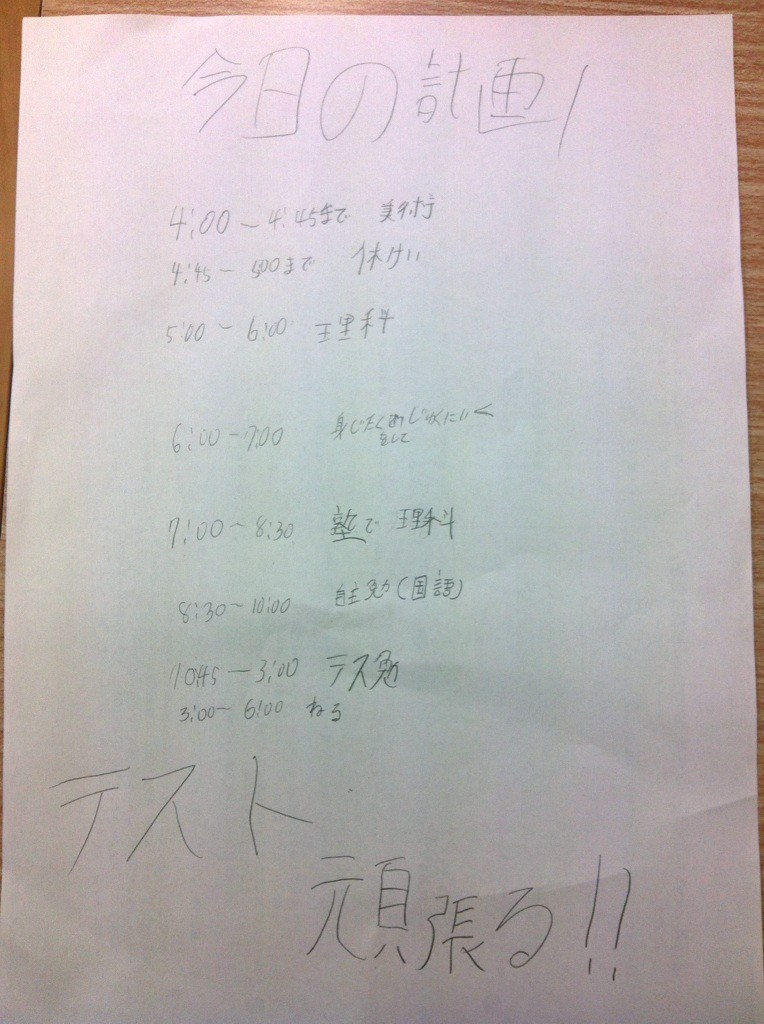 今日の計画
4:00～4:45まで 美術
4:45～5:00まで 休けい
5:00～6:00 理科
6:00～7:00 身じたくをして じゅくにいく
7:00～8:30 塾で 理科
8:30～10:00 自主勉(国語)
10:45～3:00 テス勉
3:00～6:00 ねる
テスト
頑張る!!